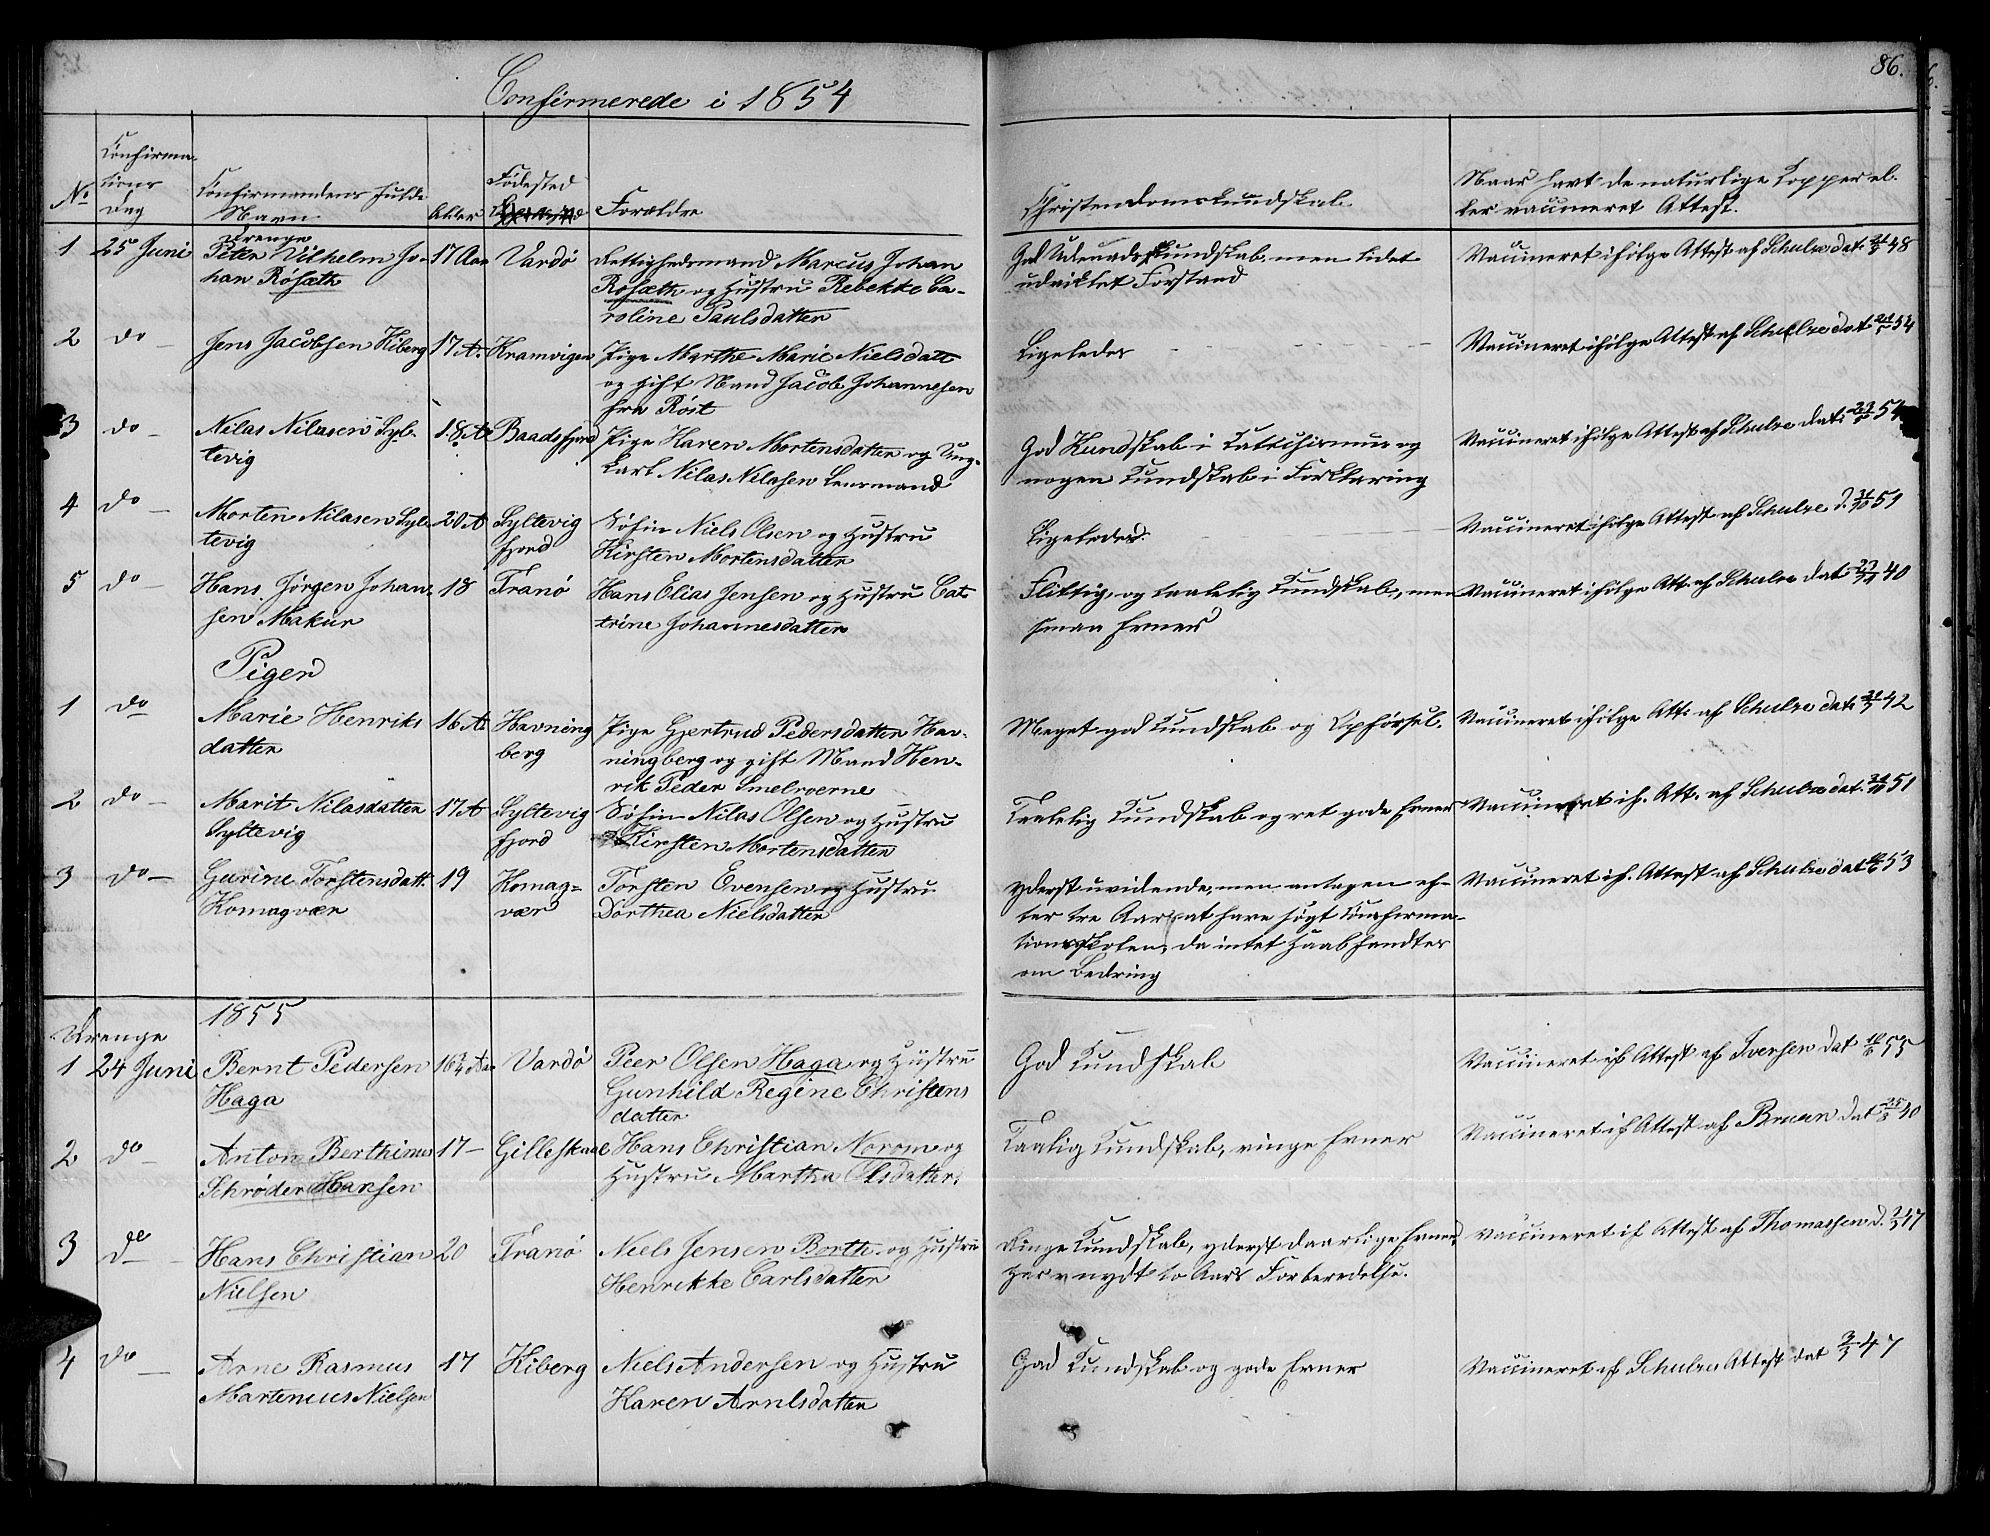 86.
Confirmerede i 1854
No
Confirma-
tions
Dag
Confirmandens fulde
Navn
Alder
Fødested
Forældre
Christendomskundskab
Naar havt de naturlige Kopper el-
ler vaccineret Attest.
Drenge
1 25 Juni Peter Vilhelm Jo- 17 Aar Vardö
han Rösæth
Rettighedsmand Marcus Johan
Rösæth og Hustru Rebekke Ca-
roline Paulsdatter
God Udenadskundskab men lidet
udviklet Forstand
Vaccineret ifölge Attest af Schulze dat. 48
2 do Jens Jacobsen Kiberg 17 A. Kramvigen
Pige Marthe Marie Nielsdatt
og gift Mand Jacob Johannesen
fra Röst
Ligeledes
Vaccineret ifölge Attest af Schulze dat 54
3 do Nilas Nilasen Syl- 18 A. Baadsfjord
tevig
Pige Karen Mortensdatter og Ung-
karl Nilas Nilasen Lensmand
God Kundskab i Catechismus og
nogen Kundskab i Forklaring
Vaccineret ifölge Attest af Schulze dat. 54
4 do Morten Nilasen Syl- 20 A Syltevig
tevig
fjord
Söfin Niels Olsen og Hustru
Kirsten Mortensdatter
Ligeledes.
Vaccineret ifölge Attest af Schulze d. 51
5 do Hans Jörgen Johan- 18 Tranö
sen Makur
Hans Elias Jensen og Hustru Cat-
trine Johannesdatter
Flittig, og taalelig Kundskab, men
smaa Evner
Vaccineret ifölge Att. af Schulze dat. 40
Piger
1 do Marie Henriks 16 A Havning
datter
berg
Pige Gjertrud Pedersdatter Hav-
ningberg og gift Mand Hen-
rik Peder Smelvoerne
Meget god Kundskab og Opförsel.
Vaccineret ifölge Att. af Schulze dat. 42
2 do Marit Nilasdatter 17 A Syltevig
Syltevig
fjord
Söfin Nilas Olsen og Hustru
Kirsten Mortensdatter
Taalelig Kundskab og ret gode Evner
Vaccineret if. Att. af Schulze dat. 51
3 do Gurine Torstensdatt. 19 Komag-
Komagvær
vær
Torsten Evensen og Hustru
Dorthea Nielsdatter
Yderst uvidende, men antagen ef-
ter tre Aar at have sögt Confirma-
tionsskolen, da intet Haab handtes
om Bedring
Vaccineret if. Attest af Schulze dat 53
1855
Drenge
1 24 Juni Bernt Pedersen 16¾ Aar Vardö
Haga
Peer Olsen Haga og Hustru
Gunhild Regine Christens
datter
God Kundskab
Vaccineret if. Attest af Iversen dat 55
2 do Anton Berthinus 17 Gilleskaal
Schrøder Hansen
Hans Christian Norom og
Hustru Martha Olsdatter
Taalig Kundskab, ringe Evner
Vaccineret if Attest af Bruun dat 40
3 do Hans Christian 20 Tranö
Nielsen
Niels Jensen Borth og Hustru
Henrikke Carlsdatter
Ringe Kundskab, yderst daarlige Evner,
Har nydt to Aars Forberedelse.
vaccineret if Attest af Thomassen d. 47
4 do Arne Rasmus 17 Kiberg
Martenius Nielsen
Niels Andersen og Hustru
Karen Arnlsdatter
God Kundskab og gode Evner
Vaccineret af Schulzes Attest dat 47